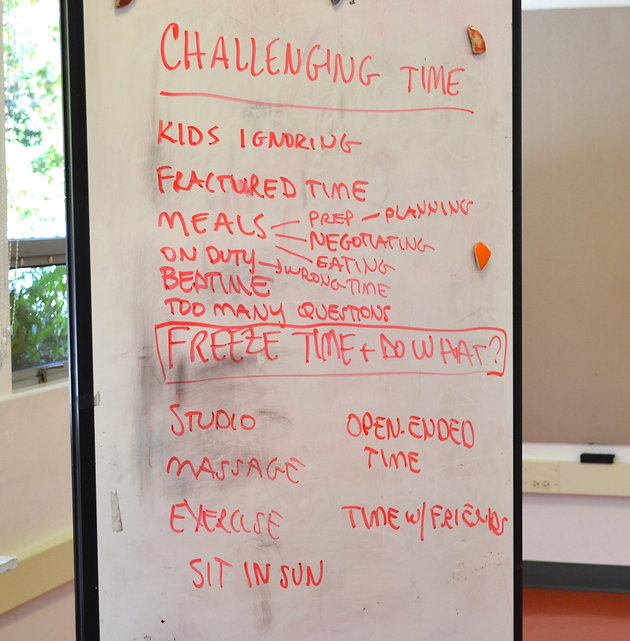 CHALLENGING TIME
KIDS IGNORING
FRACTURED TIME
MEALS – PREP – PLANNING
NEGOTIATING
EATING
ON DUTY → WRONG TIME
BEDTIME
TOO MANY QUESTIONS
FREEZE TIME + DO WHAT?
STUDIO
MASSAGE
EXERCISE
SIT IN SUN
OPEN-ENDED
TIME
TIME W/ FRIENDS